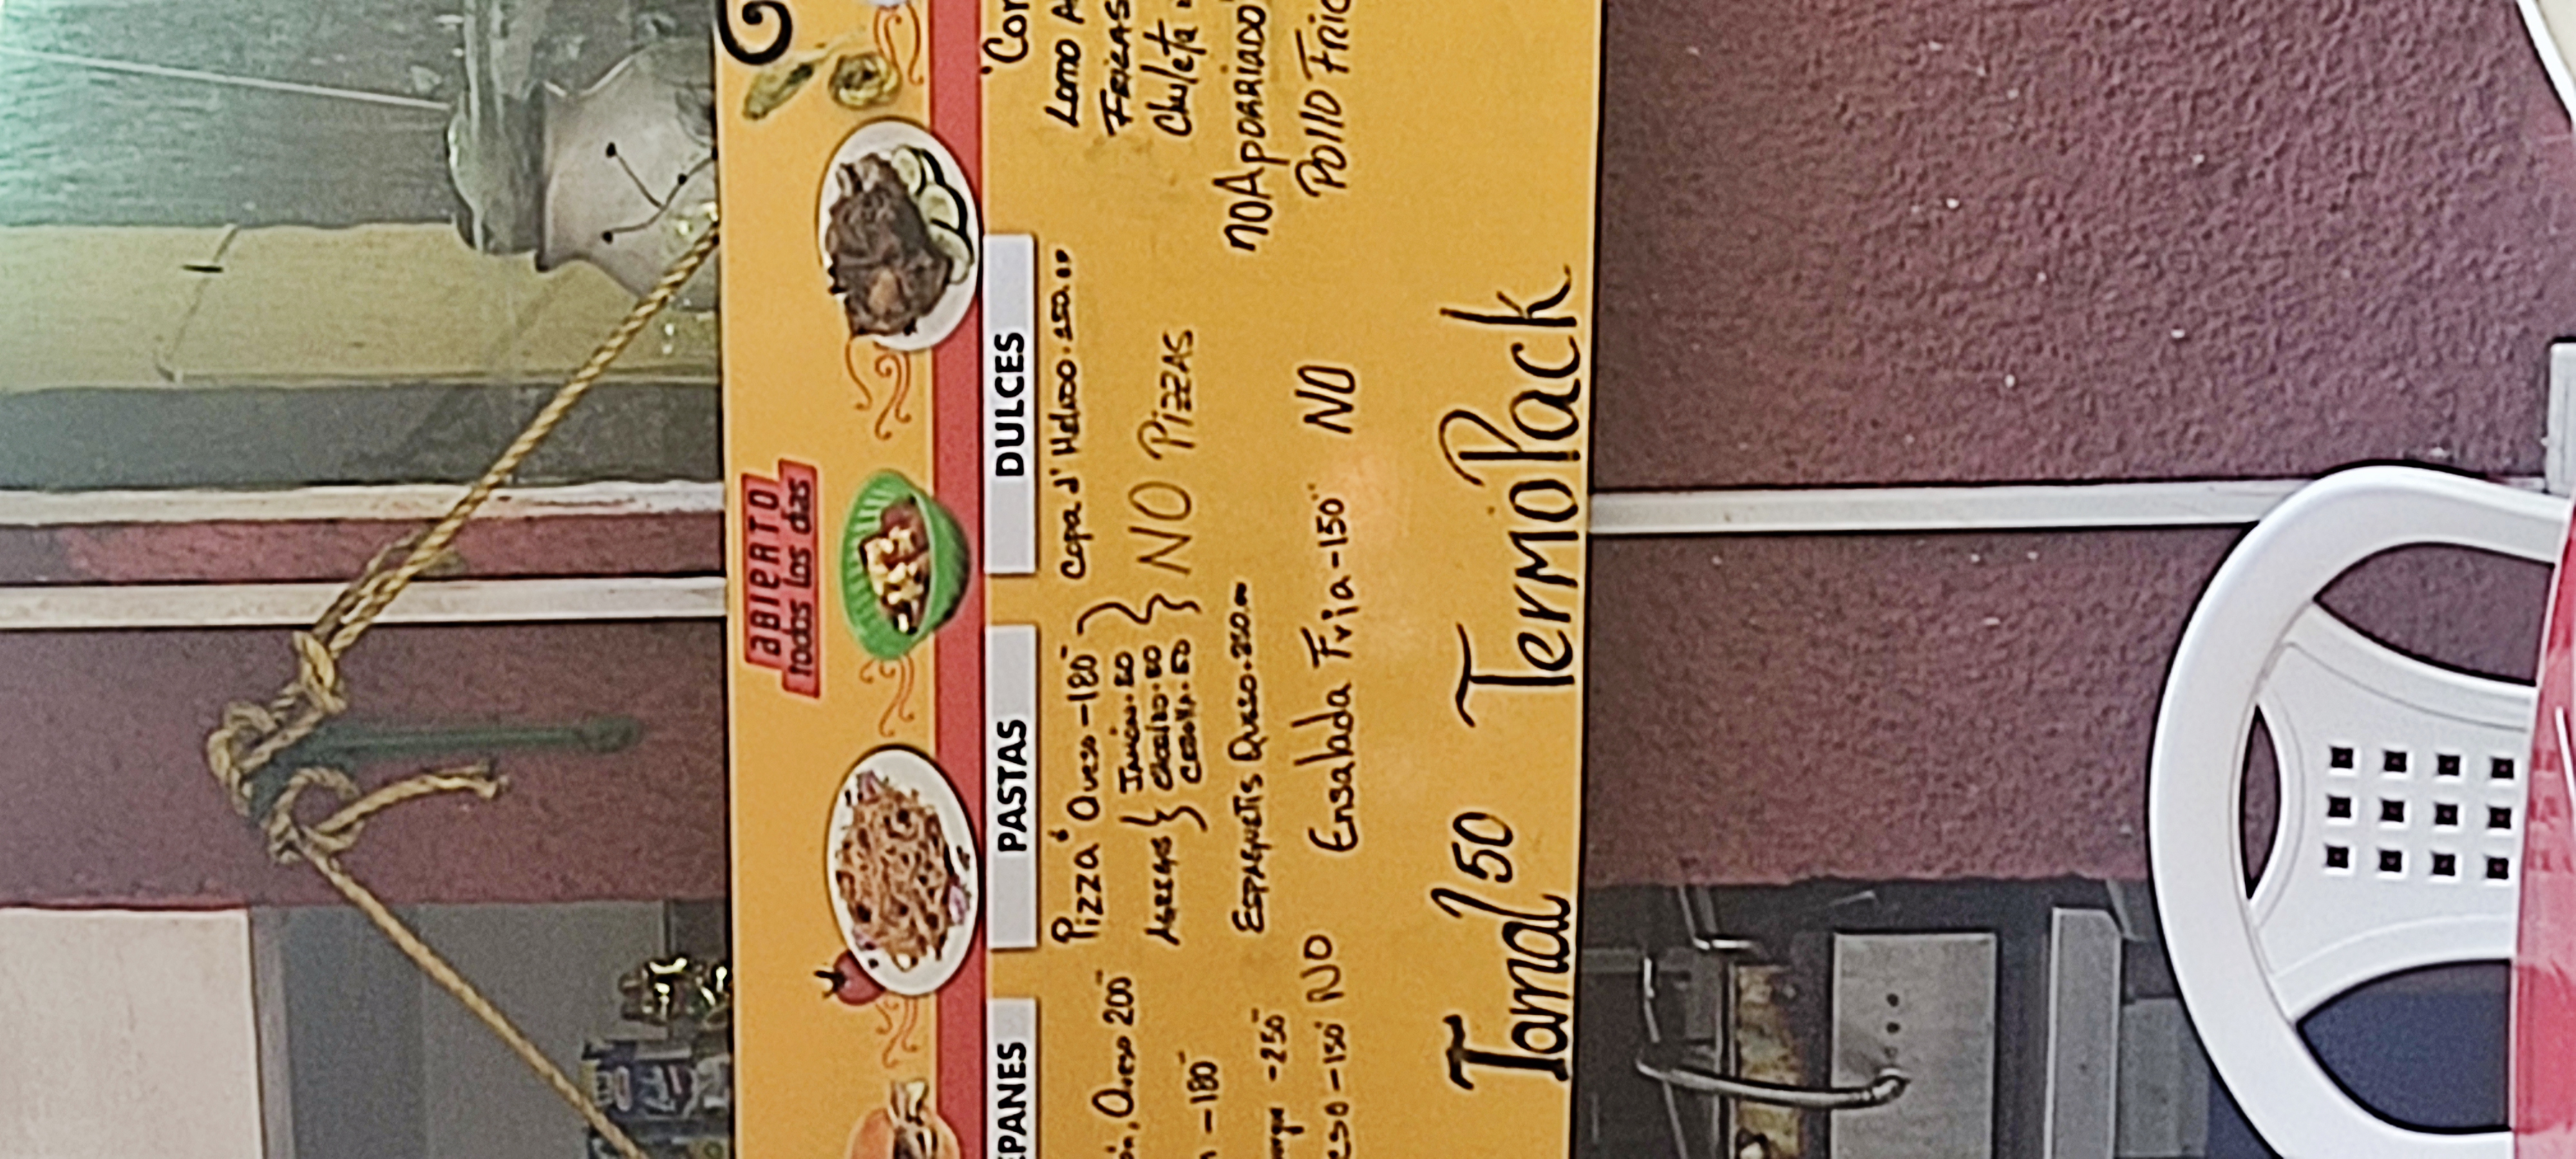 ABIERTO
todos los días
EPANES
ón, Queso 200
n - 180
- 250
eso - 150 NO
PASTAS
Pizza Queso - 180
AGREGOS { JAMÓN. 80
CHORIZO. 80
CEBOLLA. 50
ESPAGUETIS QUESO. 250.00
Ensalada Fria - 150 NO
DULCES
Copa d' Helado. 250.00
NO PIZZAS
Lomo A
FRICAS
Chuleta
NO APORRIADO
POLLO FRIC
Tamal 50 TermoPack